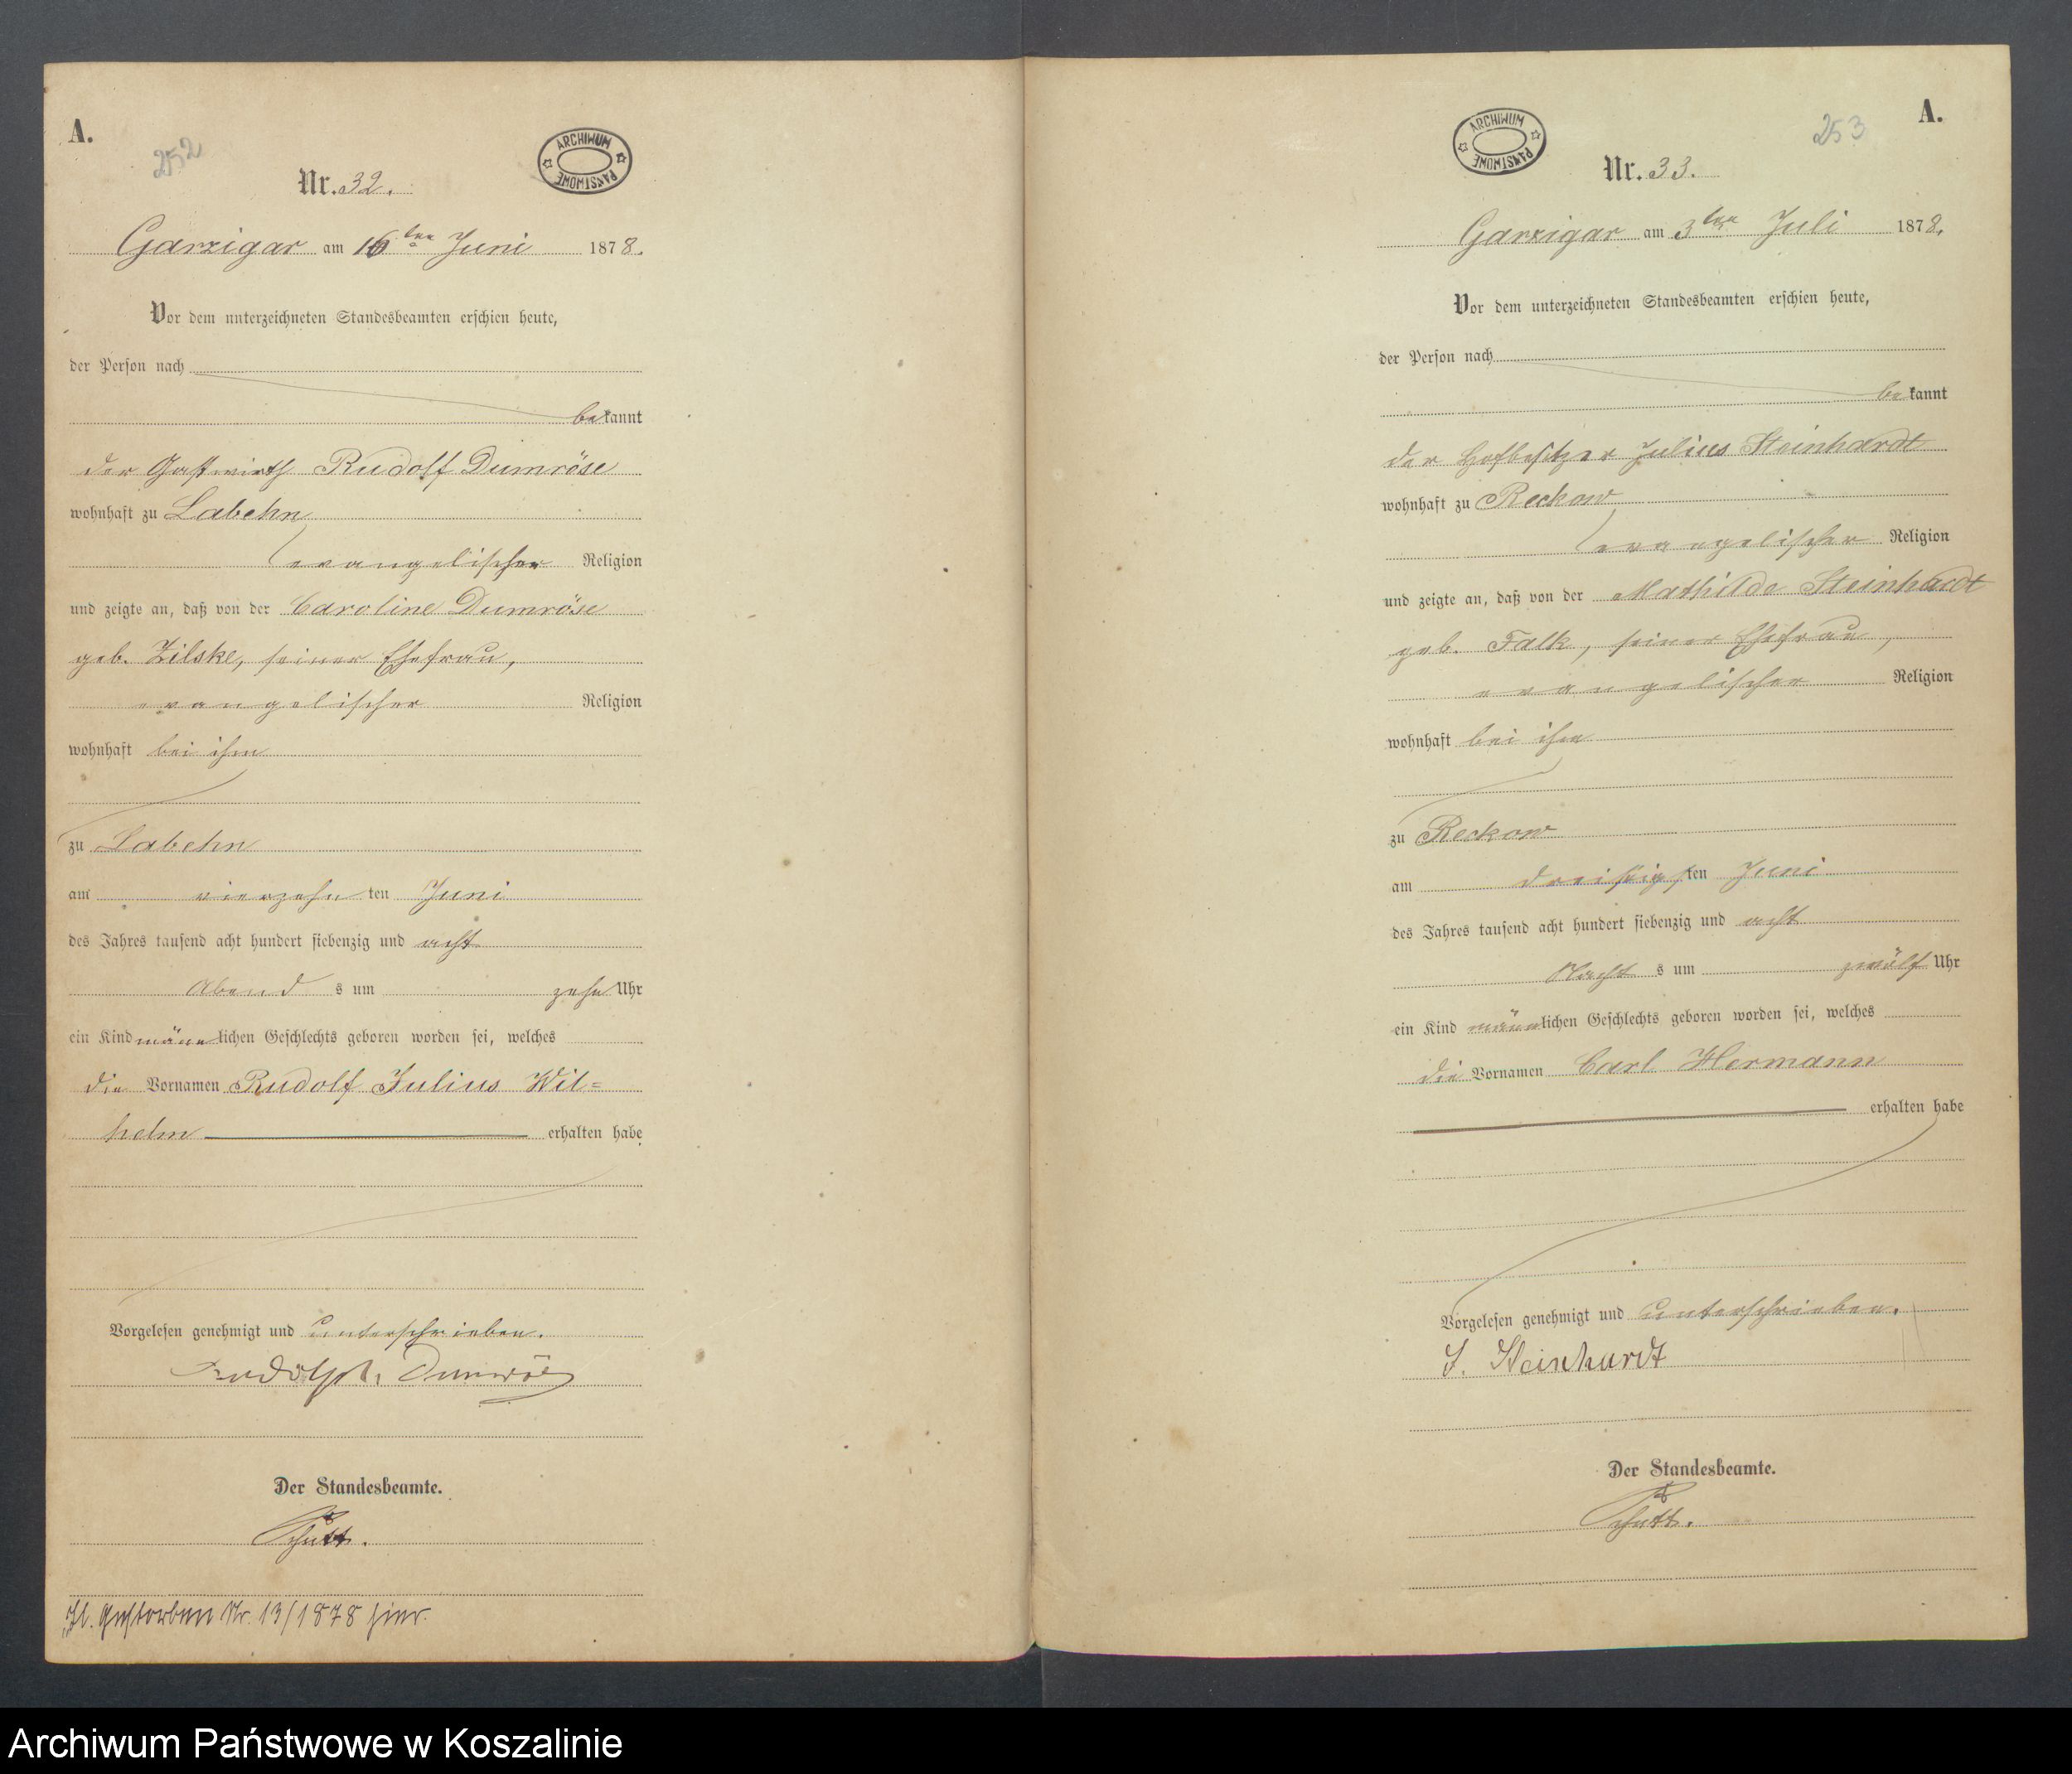 A.
252
ARCHIWUM PAŃSTWOWE
Nr. 32.
Garzigar am 16ten Juni 1878.
Vor dem unterzeichneten Standesbeamten erschien heute,
der Person nach
bekannt
der Gastwirth Rudolf Dumröse
wohnhaft zu Labehn
evangelischer Religion
und zeigte an, daß von der Caroline Dumröse
geb. Zilske, seiner Ehefrau,
evangelischer Religion
wohnhaft bei ihm
zu Labehn
am vierzehnten Juni
des Jahres tausend acht hundert siebenzig und acht
Abends um zehn Uhr
ein Kind männlichen Geschlechts geboren worden sei, welches
die Vornamen Rudolf Julius Wil=
helm erhalten habe
Vorgelesen genehmigt und unterschrieben.
Rudolph Dumröse
Der Standesbeamte.
Schütt.
Gestorben Nr. 13/1878 hier.
A.
253
ARCHIWUM PAŃSTWOWE
Nr. 33.
Garzigar am 3ten Juli 1878.
Vor dem unterzeichneten Standesbeamten erschien heute,
der Person nach
bekannt
der Hofbesitzer Julius Steinhardt
wohnhaft zu Reckow
evangelischer Religion
und zeigte an, daß von der Mathilde Steinhardt
geb. Falk, seiner Ehefrau,
evangelischer Religion
wohnhaft bei ihm
zu Reckow
am dreißigsten Juni
des Jahres tausend acht hundert siebenzig und acht
Nachts um zwölf Uhr
ein Kind männlichen Geschlechts geboren worden sei, welches
die Vornamen Carl Hermann
erhalten habe
Vorgelesen genehmigt und unterschrieben.
J. Steinhardt
Der Standesbeamte.
Schütt.
Archiwum Państwowe w Koszalinie